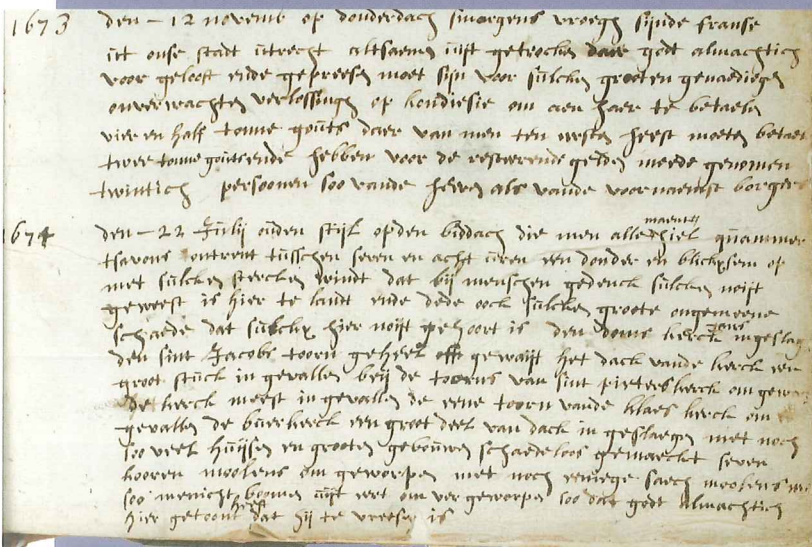 1673 den - 12 novemb op donderdach smorgens vroegh sijnde franse
uit onse stadt utrecht altsaemen uijt getrocken daer godt almachtich
voor gelooft ende gepreesen moet sijn voor sulcken grooten genaedigen
onverwachten verlossingh op kondiesie om aen haer te betaelen
vier en half tonne gouts daer van men ten eersten heeft moeten betael
twee tonne gouts ende hebben voor de resteerende gelden meede genomen
twintich persoonen soo vande heeren als vande voornaemst borger
maentl
1674 den - 22 Julij ouden stijl op den biddach die men alle hiel quammer
tsavons ontrent tusschen seven en acht uren een donder en blicksem op
met sulcken stercken windt dat bij menschen gedenck sulcken noijt
geweest is hier te landt ende dede oock sulcken groote ongemeene
schaede dat sulckx hier noijt gehoort is den doms kerck ingeslag
den sint Jacobs toorn geheel off gewaijt het dack vande kerck een
groot stuck in gevallen beij de toorens van sint pieters kerck om gew
de kerck meest in gevallen de eene toorn vande klaes kerck om
gevallen de buer kerck een groot deel van dack in geslaegen met noch
soo veel huijsen en grooten gebouwen schaedeloos gemaeckt seven
kooren moolens om geworpen met noch eenege saech moolens
soo menicht boomen uijt eert om ver geworpen soo dat godt almachtich
hier getoont heeft dat hij te vreesen is